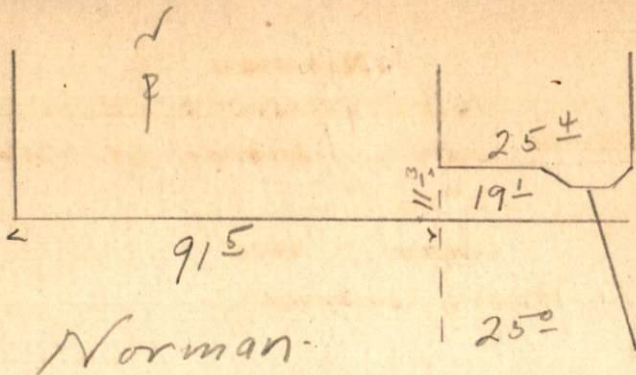 25 4
19 1
91 5
25 0
Norman.